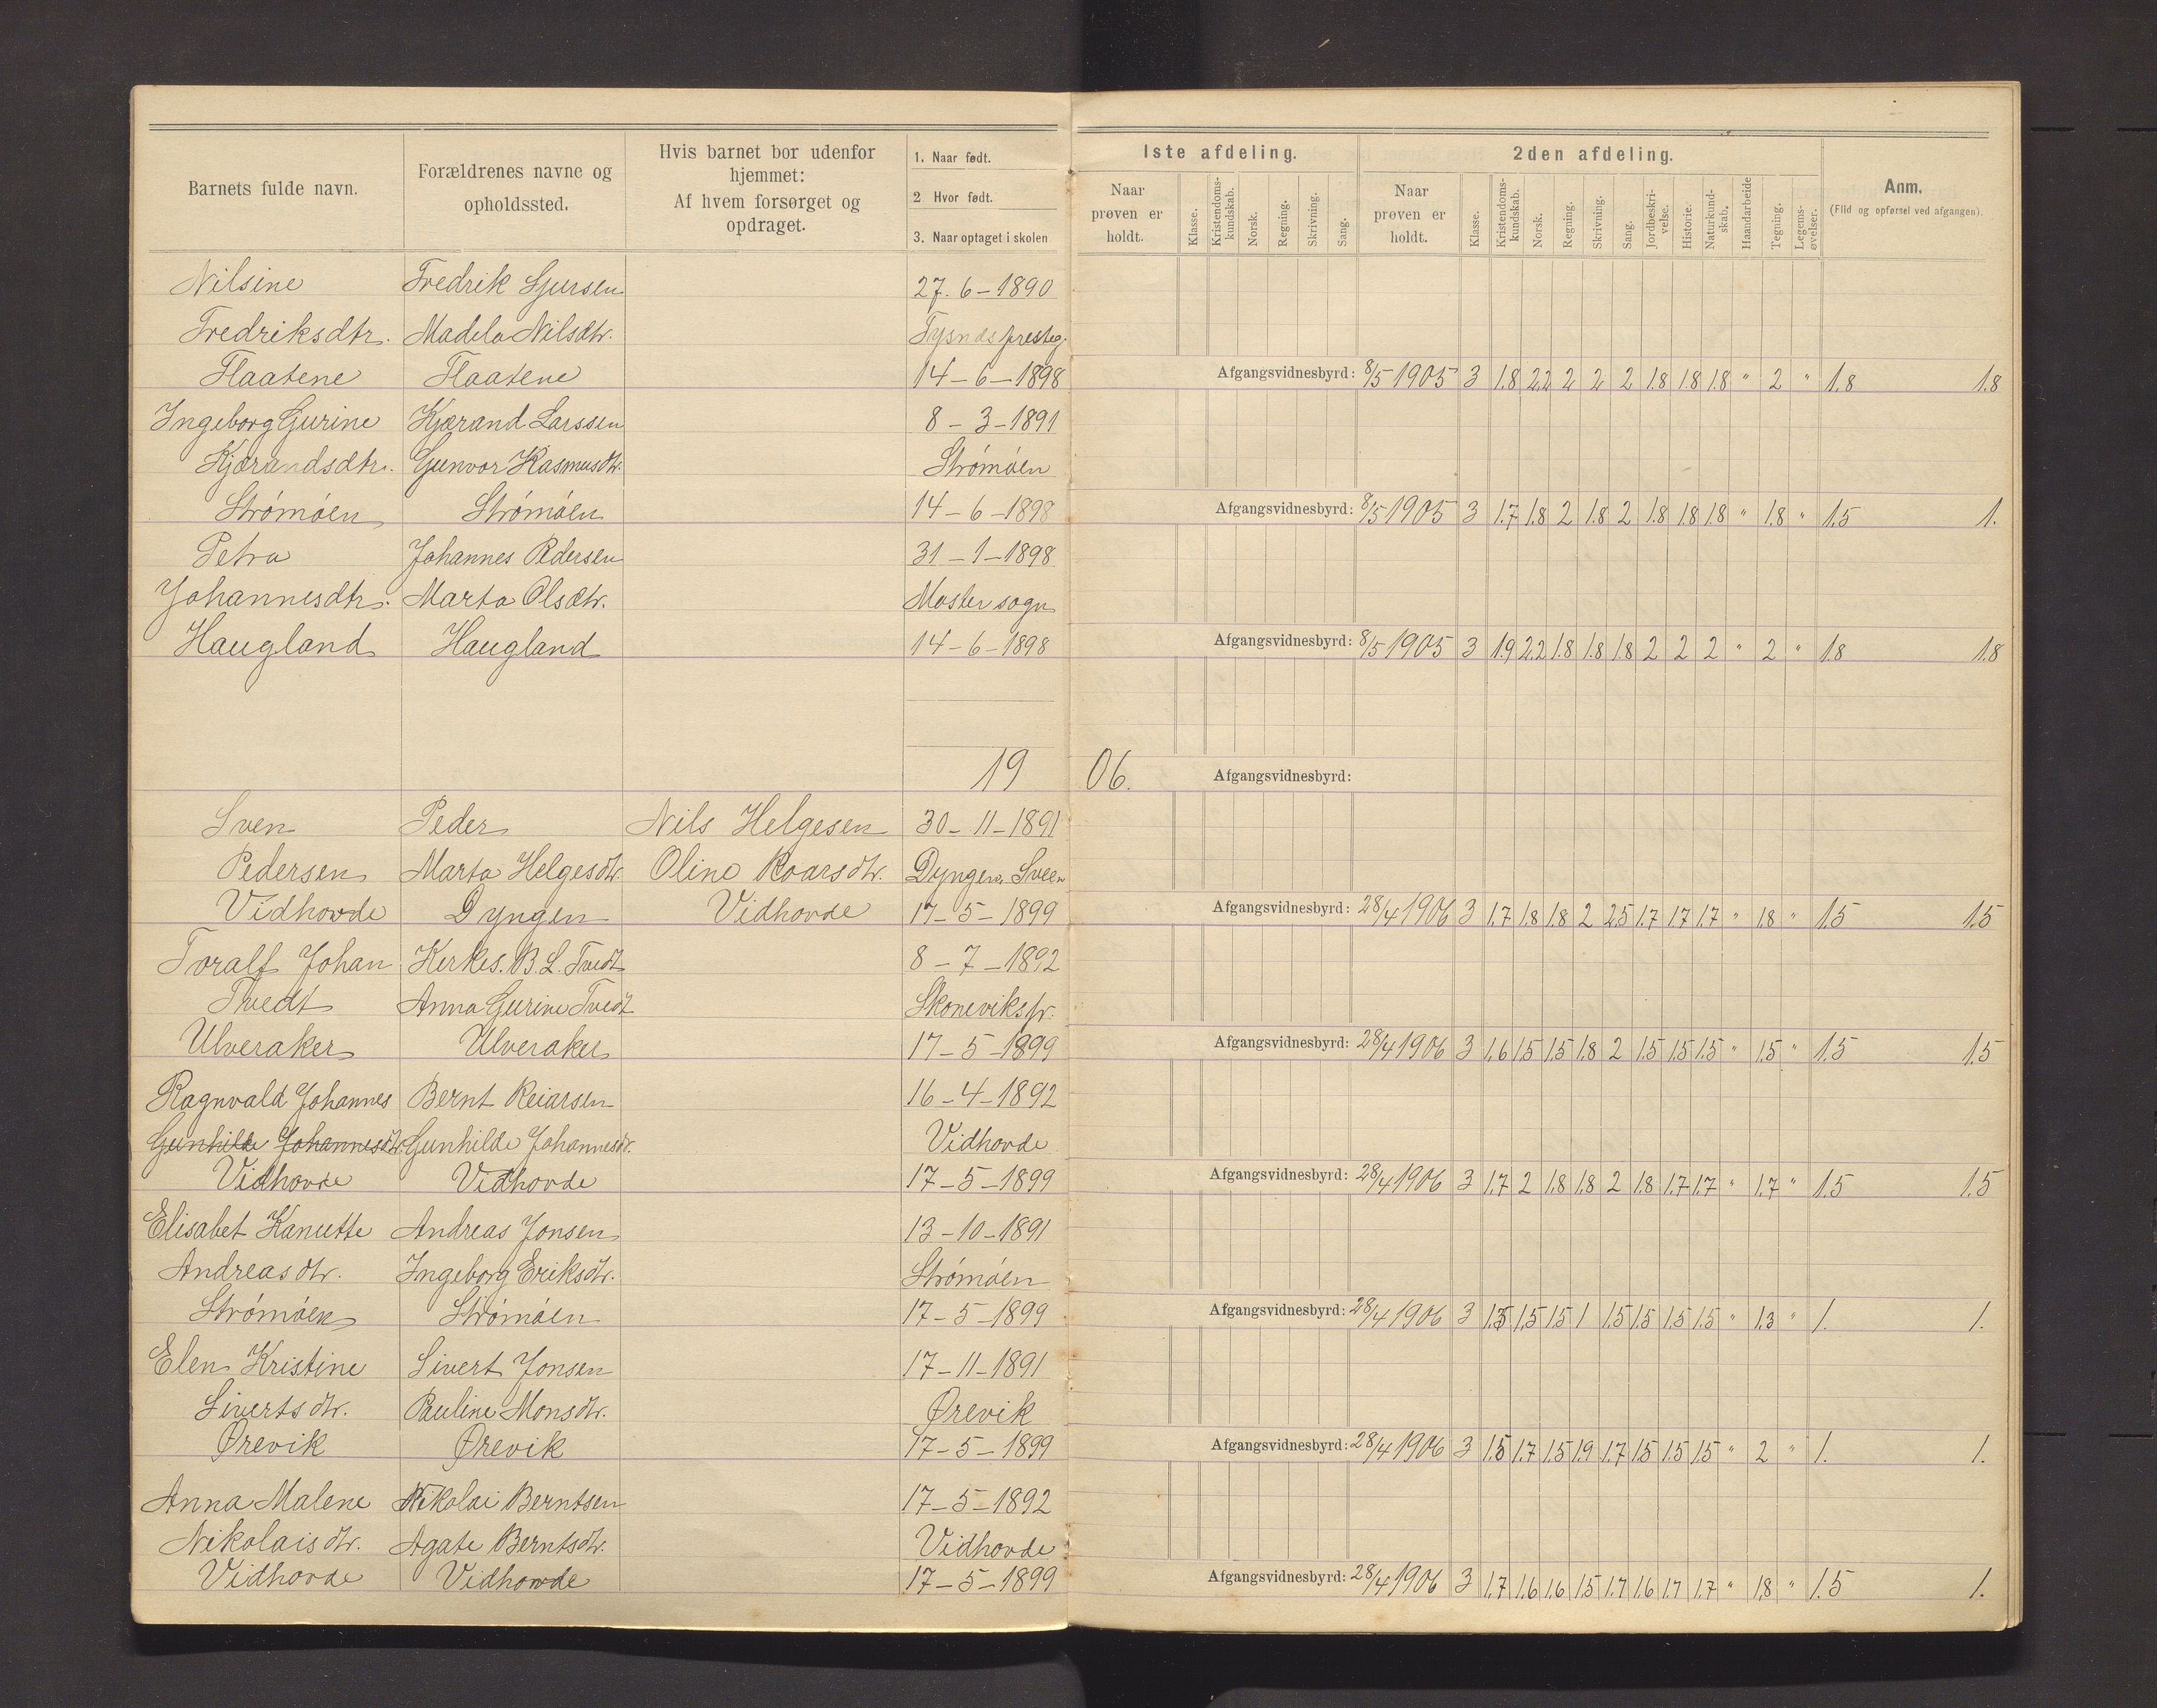 Barnets fulde navn.
Forældrenes navne og opholdssted.
Hvis barnet bor udenfor hjemmet: Af hvem forsørget og opdraget.
1. Naar født.
2 Hvor født.
3. Naar optaget i skolen
1ste afdeling.
Naar prøven er holdt.
Klasse.
Kristendoms-kundskab.
Norsk.
Regning.
Skrivning.
Sang.
2den afdeling.
Naar prøven er holdt.
Klasse.
Kristendoms-kundskab.
Norsk.
Regning.
Skrivning.
Sang.
Jordbeskri-velse.
Historie.
Naturkund-skab.
Haandarbeide
Tegning.
Legems-øvelser.
Anm.
(Flid og opførsel ved afgangen).
Nilsine Fredrik Sjursen 27.6-1890
Fredriksdtr. Madela Nilsdtr. Tysnæs presteg.
Flaatene Flaatene 14-6-1898 Afgangsvidnesbyrd: 8/5 1905 3 1.8 2.2 2 2 2 1.8 1.8 1.8 " 2 " 1.8 1.8
Ingeborg Gurine Kjærand Larssen 8-3-1891
Kjærandsdtr. Gunvor Rasmusdtr. Strømøen
Strømøen Strømøen 14-6-1898 Afgangsvidnesbyrd: 8/5 1905 3 1.7 1.8 2 1.8 2 1.8 1.8 1.8 " 1.8 " 1.5 1.
Petra Johannes Pedersen 31-1-1898
Johannesdtr. Marta Olsdtr. Moster sogn
Haugland Haugland 14-6-1898 Afgangsvidnesbyrd: 8/5 1905 3 1.9 2.2 1.8 1.8 1.8 2 2 2 " 2 " 1.8 1.8
19 06. Afgangsvidnesbyrd:
Sven Peder Nils Helgesen 30-11-1891
Pedersen Marta Helgesdtr. Oline Roarsdtr. Dyngen, Sveen
Vidhovde Dyngen Vidhovde 17-5-1899 Afgangsvidnesbyrd: 28/4 1906 3 1.7 1.8 1.8 2 2.5 1.7 1.7 1.7 " 1.8 " 1.5 1.5
Toralf Johan Kirkes. B. L. Tvedt 8-7-1892
Tvedt Anna Gurine Tvedt Skonevikspr.
Ulveraker Ulveraker 17-5-1899 Afgangsvidnesbyrd: 28/4 1906 3 1.6 1.5 1.5 1.8 2 1.5 1.5 1.5 " 1.5 " 1.5 1.5
Ragnvald Johannes Bernt Reiarsen 16-4-1892
Gunhilde Johannesdtr. Gunhilde Johannesdtr. Vidhovde
Vidhovde Vidhovde 17-5-1899 Afgangsvidnesbyrd: 28/4 1906 3 1.7 2 1.8 1.8 2 1.8 1.7 1.7 " 1.7 " 1.5 1.5
Elisabet Kanutte Andreas Jonsen 13-10-1891
Andreasdtr. Ingeborg Eriksdtr. Strømøen
Strømøen Strømøen 17-5-1899 Afgangsvidnesbyrd: 28/4 1906 3 1.5 1.5 1.5 1 1.5 1.5 1.5 1.5 " 1.3 " 1. 1.
Elen Kristine Sivert Jonsen 17-11-1891
Sivertsdtr. Pauline Monsdtr. Ørevik
Ørevik Ørevik 17-5-1899 Afgangsvidnesbyrd: 28/4 1906 3 1.5 1.7 1.5 1.9 1.7 1.5 1.5 1.5 " 2 " 1. 1.
Anna Malene Nikolai Berntsen 17-5-1892
Nikolaisdtr. Agate Berntsdtr. Vidhovde
Vidhovde Vidhovde 17-5-1899 Afgangsvidnesbyrd: 28/4 1906 3 1.7 1.6 1.6 1.5 1.7 1.6 1.7 1.7 " 1.8 " 1.5 1.